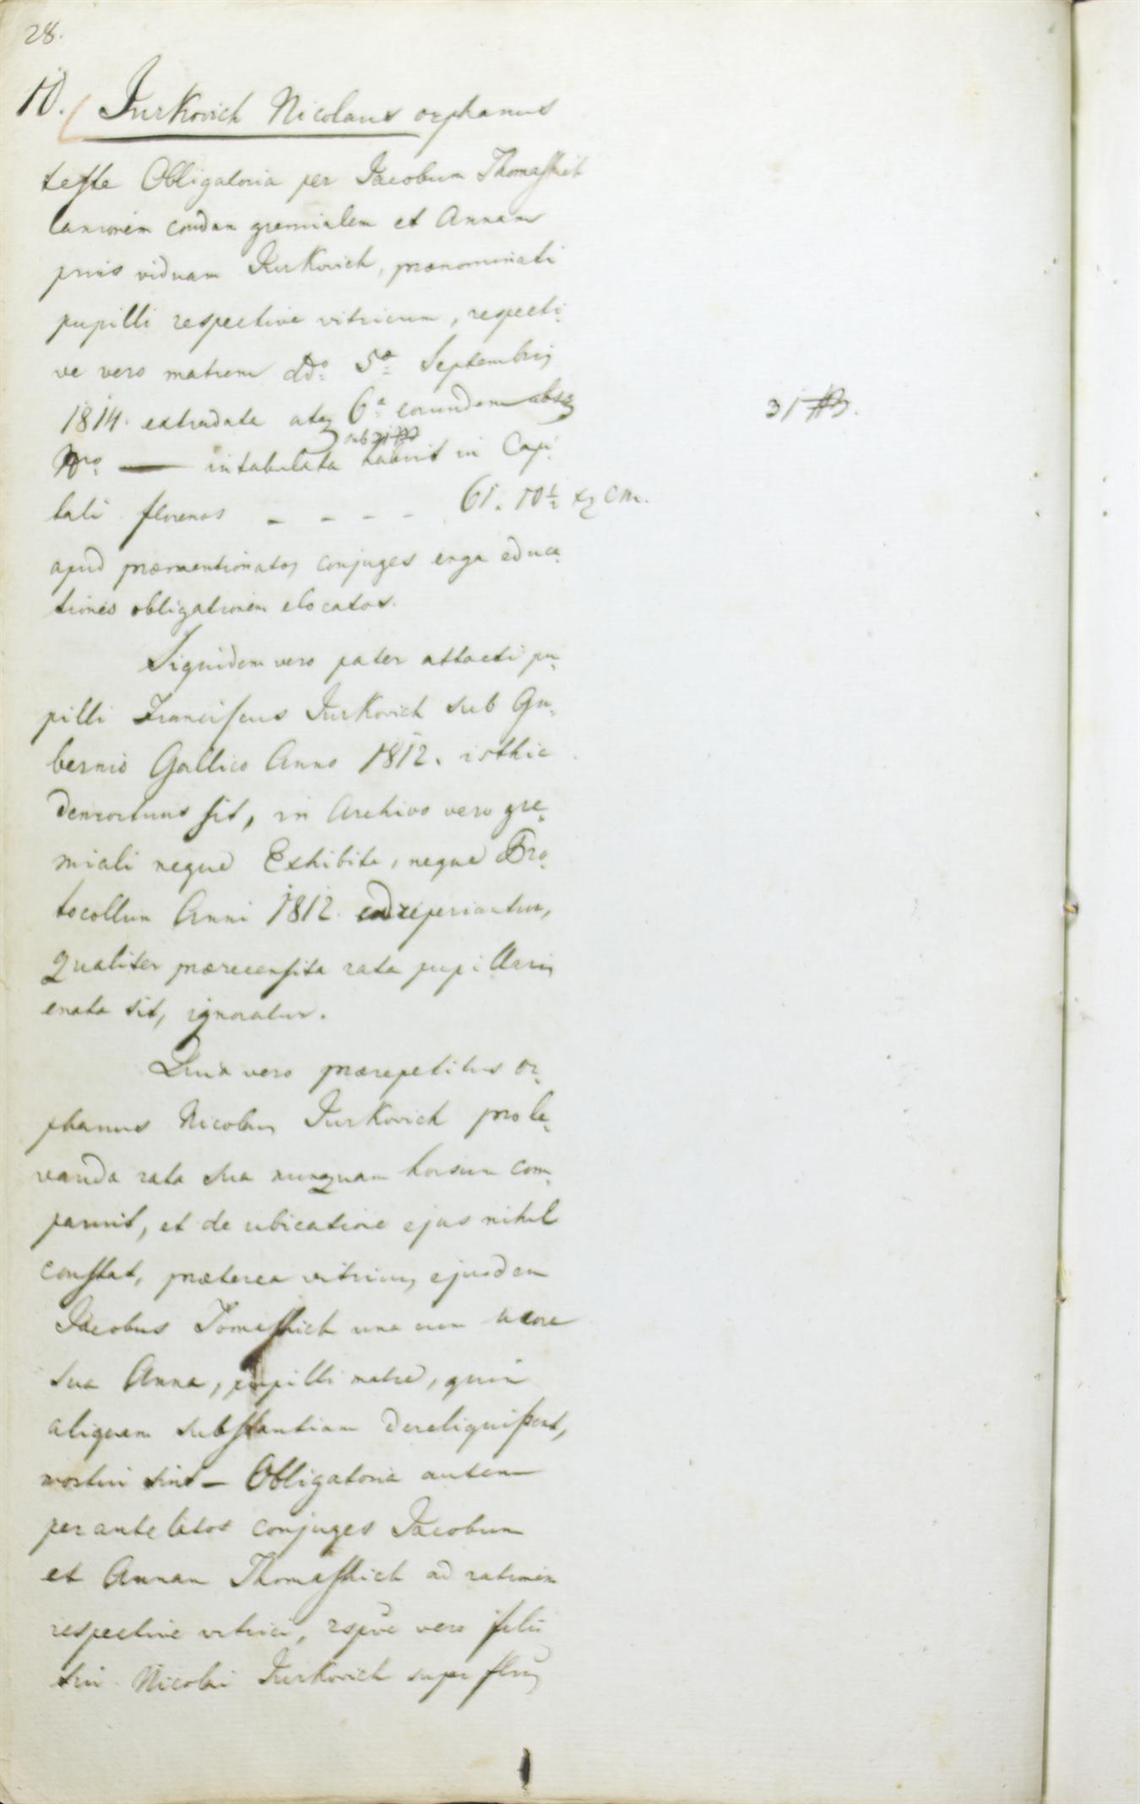 28.
10. Jurkovich Nicolaus orphanus
teste Obligatoria per Jacobum Thomashich
lanionem condam gremialem et Annam
prius viduam Jurkovich, prænominati
pupilli respective vitricum, respecti-
ve vero matrem ddo. 5a Septembris
1814. extradata atq 6a eorundem absq
sub 31
Nro — intabulata habuit in Capi-
31
tali florenos - - - - 61. 10½ xr CM.
apud præmentionatos conjuges erga educa-
tionis obligationem elocatos.
Siquidem vero pater attacti pu-
pilli Franciscus Jurkovich sub Gu-
bernio Gallico Anno 1812. isthic
demortuus sit, in Archivo vero gre-
miali neque Exhibita, neque Pro-
tocollum Anni 1812. reperiantur,
qualiter præcensita rata pupillaris
enata sit, ignoratur.
Quia vero præpetitus or-
phanus Nicolaus Jurkovich pro le-
vanda rata sua nunquam horsum com-
paruit, et de ubicatione ejus nihil
constat, præterea vitricus ejusdem
Jacobus Tomashich una cum uxore
sua Anna, pupilli matre, quin
aliquam substantiam dereliquissent,
mortui sint — Obligatoria autem
per antelatos conjuges Jacobum
et Annam Thomashich ad rationem
respective vitrici, rspve vero filii
sui Nicolai Jurkovich super florenis